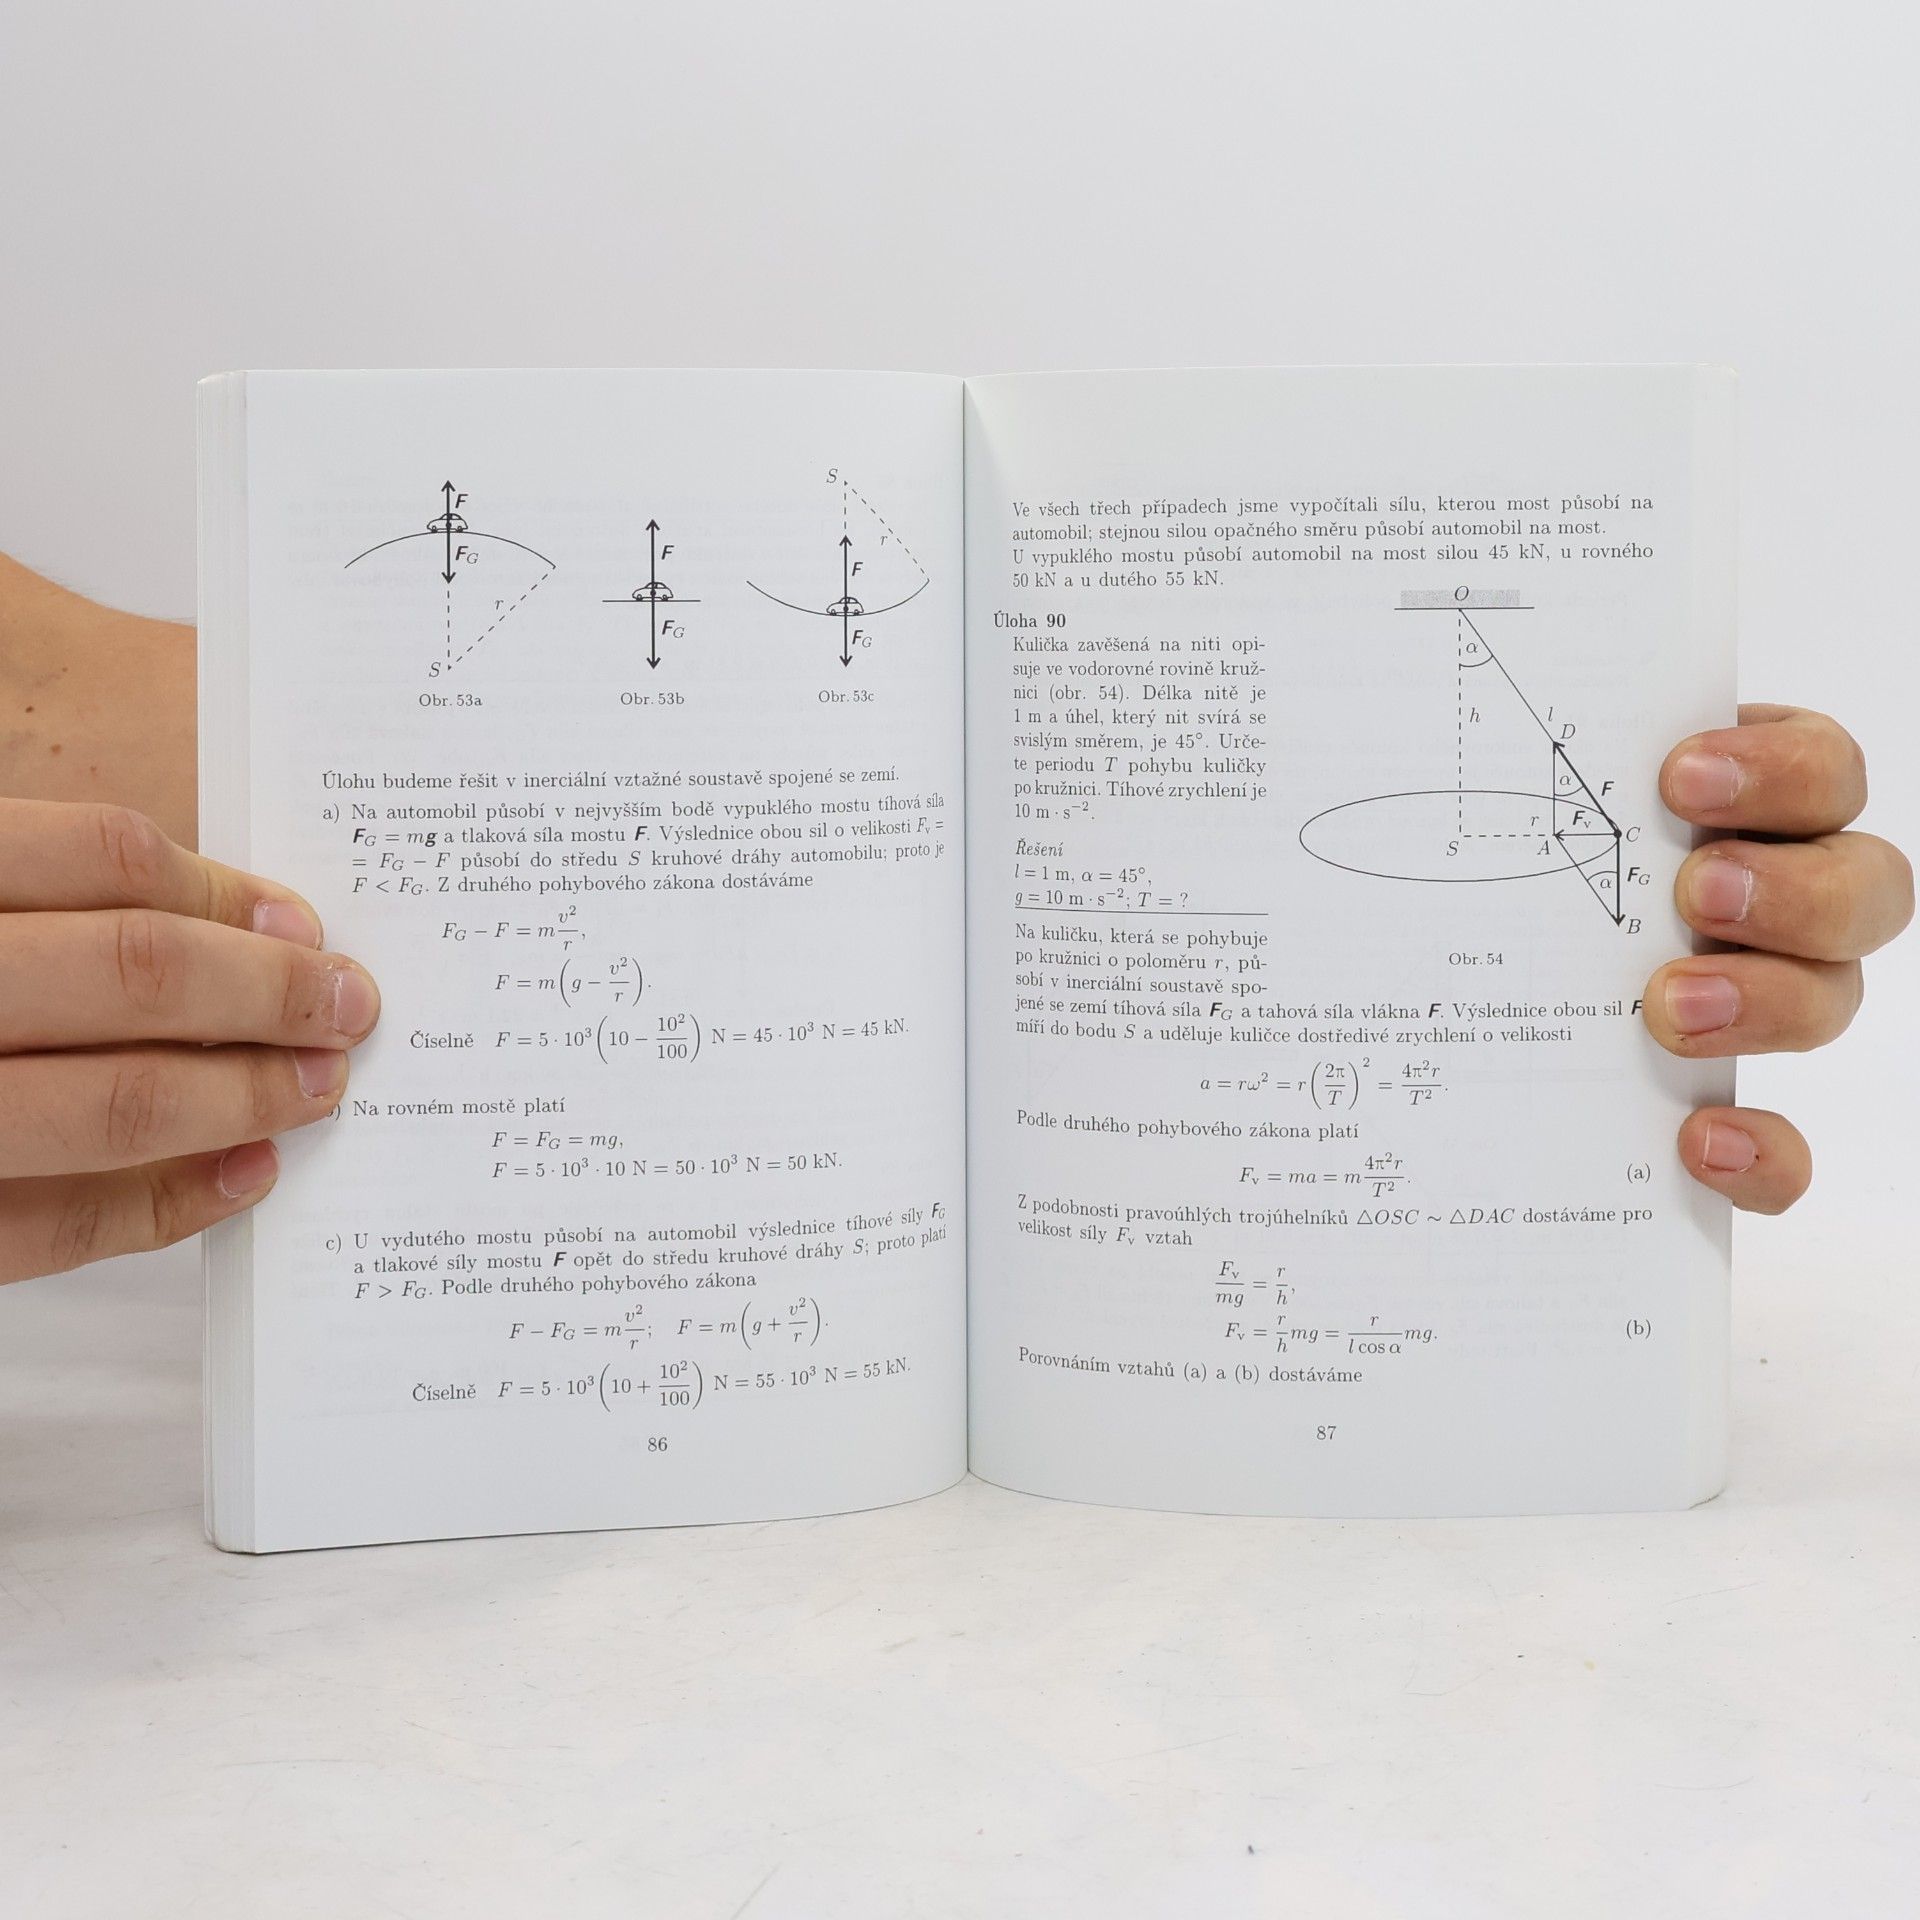 F
F_G
r
S
Obr. 53a
F
F_G
Obr. 53b
S
r
F
F_G
Obr. 53c
Úlohu budeme řešit v inerciální vztažné soustavě spojené se zemí.
a) Na automobil působí v nejvyšším bodě vypuklého mostu tíhová síla
F_G = mg a tlaková síla mostu F. Výslednice obou sil o velikosti F_v =
= F_G − F působí do středu S kruhové dráhy automobilu; proto je
F < F_G. Z druhého pohybového zákona dostáváme
F_G − F = m v²/r,
F = m(g − v²/r).
Číselně F = 5 · 10³ (10 − 10²/100) N = 45 · 10³ N = 45 kN.
) Na rovném mostě platí
F = F_G = mg,
F = 5 · 10³ · 10 N = 50 · 10³ N = 50 kN.
c) U vydutého mostu působí na automobil výslednice tíhové síly F_G
a tlakové síly mostu F opět do středu kruhové dráhy S; proto platí
F > F_G. Podle druhého pohybového zákona
F − F_G = m v²/r; F = m(g + v²/r).
Číselně F = 5 · 10³ (10 + 10²/100) N = 55 · 10³ N = 55 kN.
86
Ve všech třech případech jsme vypočítali sílu, kterou most působí na
automobil; stejnou silou opačného směru působí automobil na most.
U vypuklého mostu působí automobil na most silou 45 kN, u rovného
50 kN a u dutého 55 kN.
Úloha 90
Kulička zavěšená na niti opi-
suje ve vodorovné rovině kruž-
nici (obr. 54). Délka nitě je
1 m a úhel, který nit svírá se
svislým směrem, je 45°. Urče-
te periodu T pohybu kuličky
po kružnici. Tíhové zrychlení je
10 m · s⁻².
Řešení
l = 1 m, α = 45°,
g = 10 m · s⁻²; T = ?
Na kuličku, která se pohybuje
po kružnici o poloměru r, pů-
sobí v inerciální soustavě spo-
O
α
h
l
D
α
F
r
F_v
S
A
C
α
F_G
B
Obr. 54
jené se zemí tíhová síla F_G a tahová síla vlákna F. Výslednice obou sil F
míří do bodu S a uděluje kuličce dostředivé zrychlení o velikosti
a = rω² = r(2π/T)² = 4π²r/T².
Podle druhého pohybového zákona platí
F_v = ma = m 4π²r/T². (a)
Z podobnosti pravoúhlých trojúhelníků △OSC ∼ △DAC dostáváme pro
velikost síly F_v vztah
F_v/mg = r/h,
F_v = r/h mg = r/(l cos α) mg. (b)
Porovnáním vztahů (a) a (b) dostáváme
87